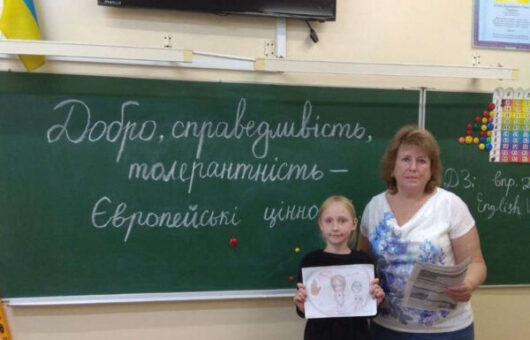 Добро, справедливість,
толерантність –
Європейські цінно
ДЗ: впр. 2
English